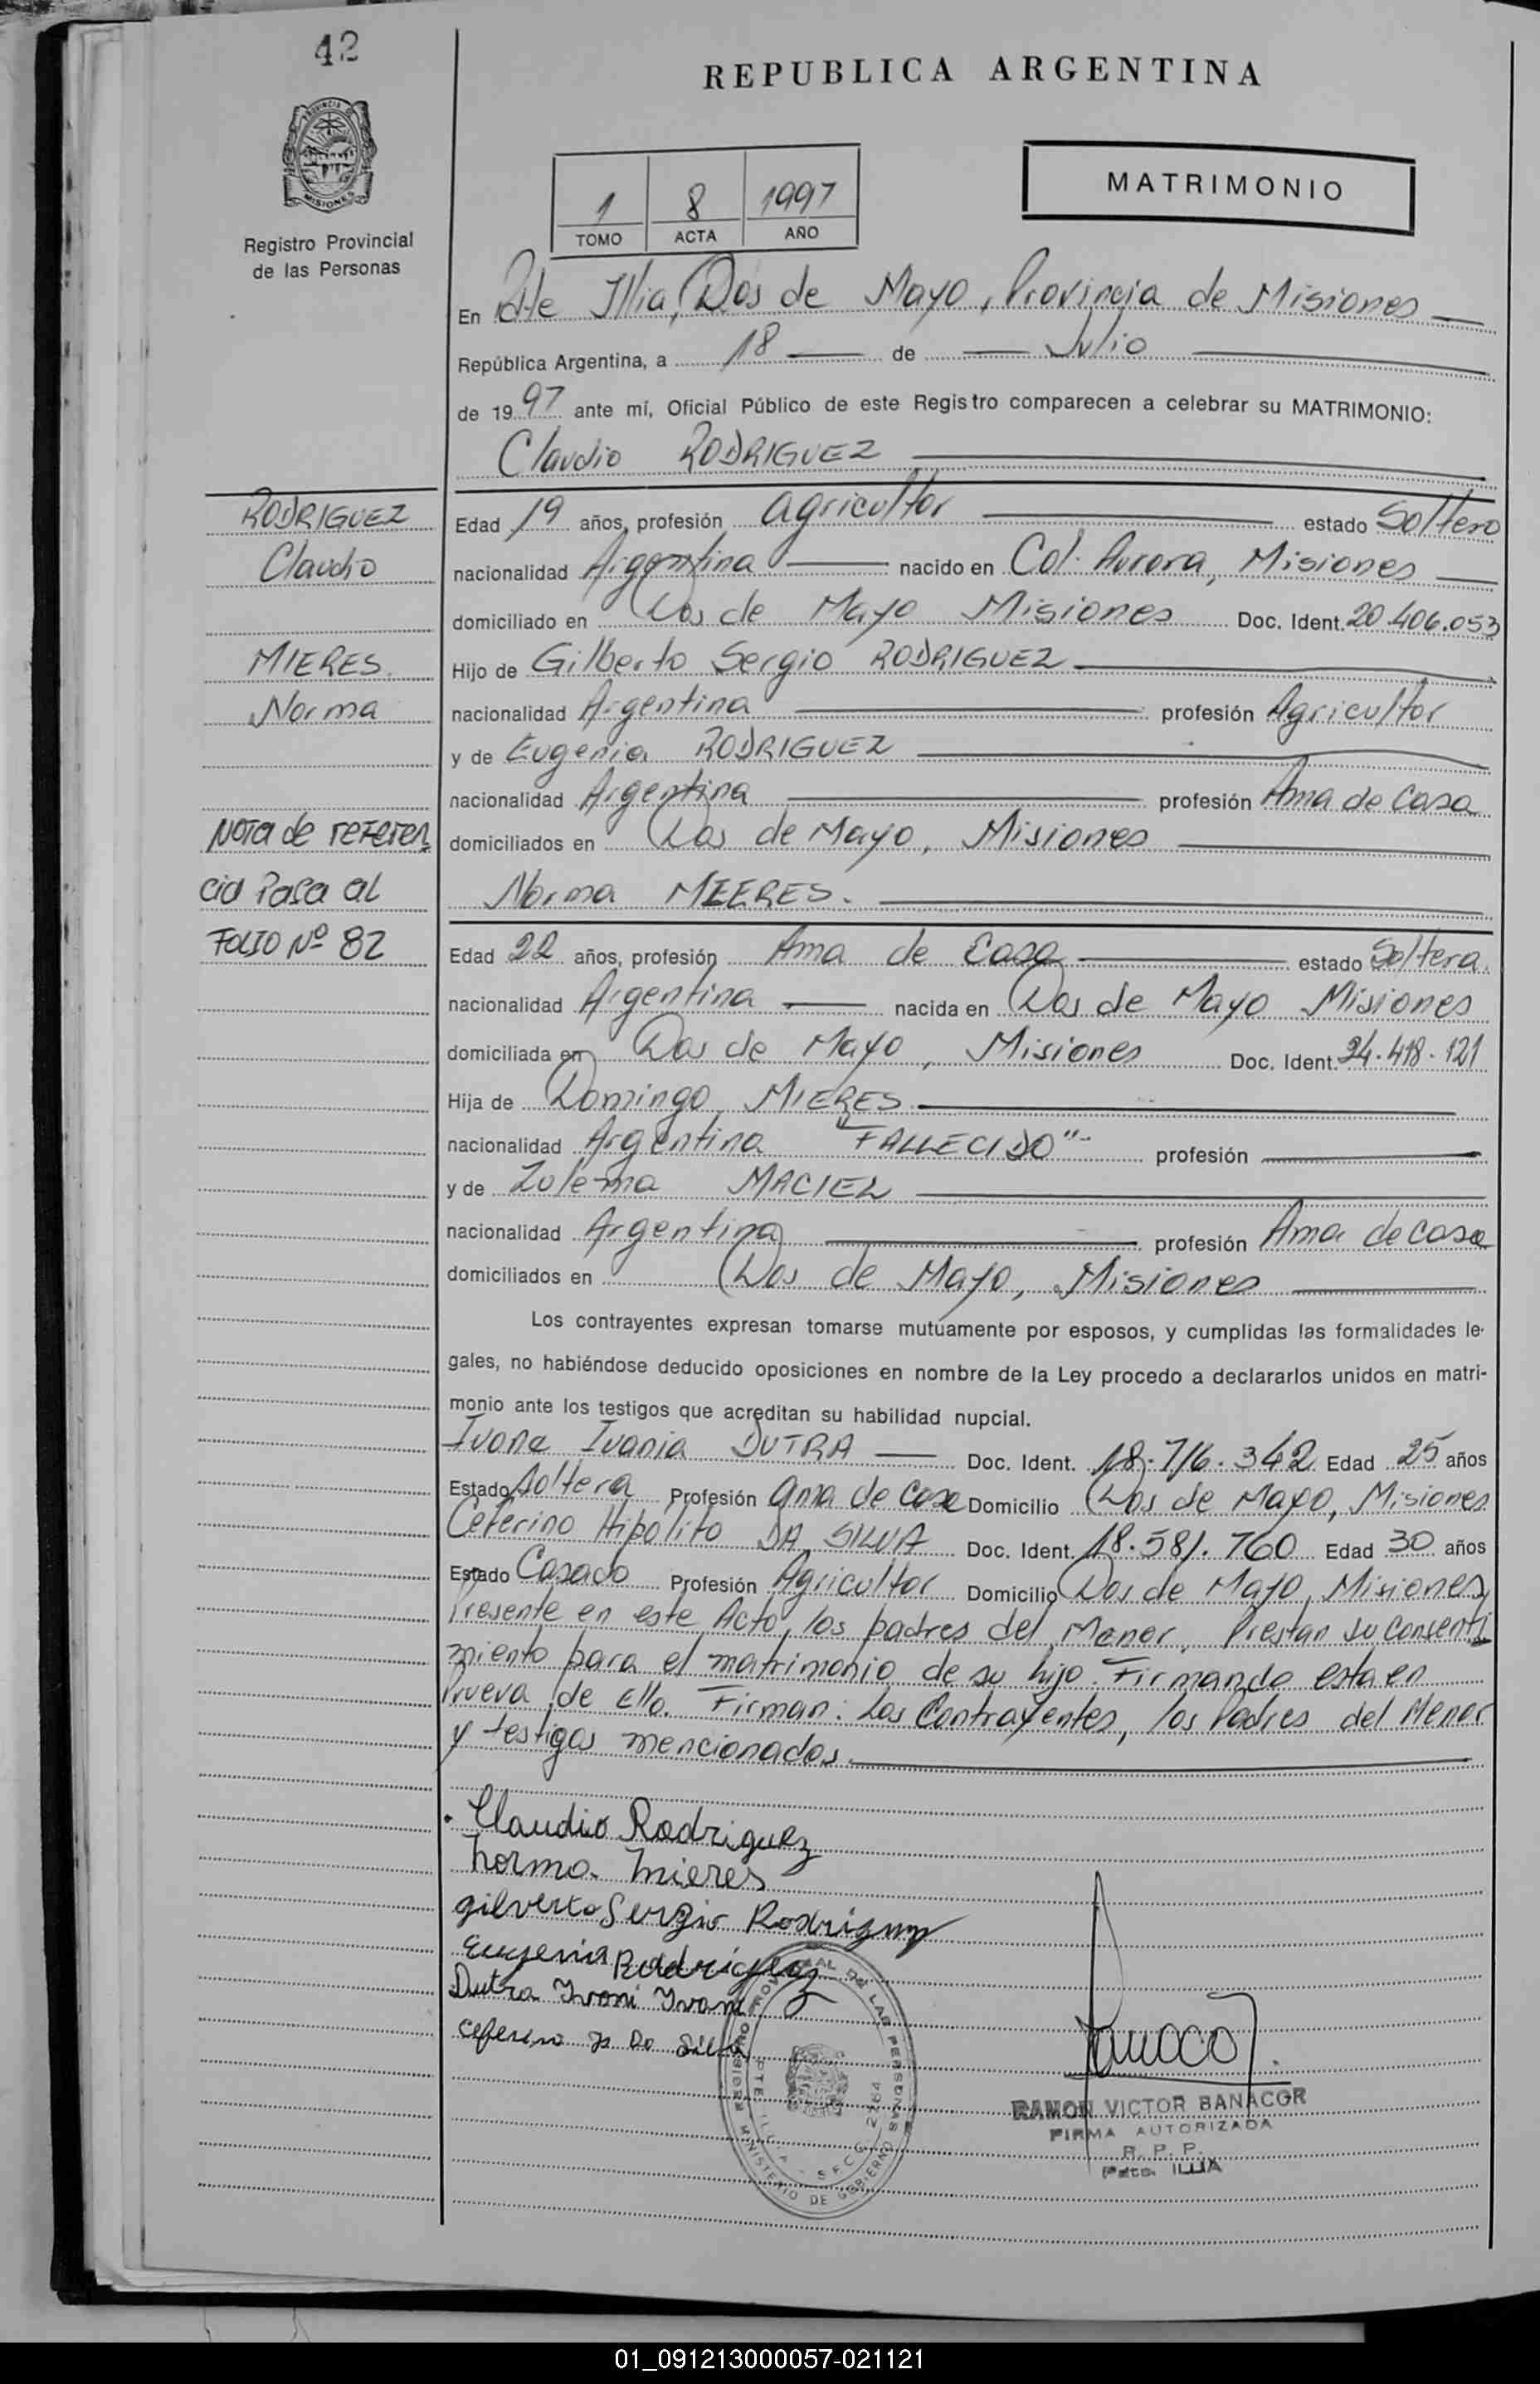 42
REPUBLICA ARGENTINA
MISIONES
Registro Provincial
de las Personas
1 8 1997
TOMO ACTA AÑO
MATRIMONIO
En Pdte Illia, Dos de Mayo, Provincia de Misiones
República Argentina, a 18 de Julio
de 1997 ante mí, Oficial Público de este Registro comparecen a celebrar su MATRIMONIO:
Claudio RODRIGUEZ
RODRIGUEZ
Claudio
MIERES
Norma
Nota de referen
cia Pasa al
FOLIO Nº 82
Edad 19 años, profesión agricultor estado Soltero
nacionalidad Argentina nacido en Col. Aurora, Misiones
domiciliado en Dos de Mayo Misiones Doc. Ident. 20.406.053
Hijo de Gilberto Sergio RODRIGUEZ
nacionalidad Argentina profesión Agricultor
y de Eugenia RODRIGUEZ
nacionalidad Argentina profesión Ama de Casa
domiciliados en Dos de Mayo, Misiones
Norma MIERES.
Edad 22 años, profesión Ama de Casa estado Soltera
nacionalidad Argentina nacida en Dos de Mayo Misiones
domiciliada en Dos de Mayo, Misiones Doc. Ident. 24.418.121
Hija de Domingo MIERES
nacionalidad Argentina "FALLECIDO" profesión
y de Zulema MACIEL
nacionalidad Argentina profesión Ama de casa
domiciliados en Dos de Mayo, Misiones
Los contrayentes expresan tomarse mutuamente por esposos, y cumplidas las formalidades le-
gales, no habiéndose deducido oposiciones en nombre de la Ley procedo a declararlos unidos en matri-
monio ante los testigos que acreditan su habilidad nupcial.
Ivone Ivania DUTRA Doc. Ident. 18.716.342 Edad 25 años
Estado Soltera Profesión ama de casa Domicilio Dos de Mayo, Misiones
Ceferino Hipolito DA SILVA Doc. Ident. 18.581.760 Edad 30 años
Estado Casado Profesión Agricultor Domicilio Dos de Mayo, Misiones
Presente en este Acto, los padres del Menor, Prestan su consenti
miento para el matrimonio de su hijo. Firmando esta en
Prueva de Ello. Firman: Los Contrayentes, los Padres del Menor
y testigos mencionados.
Claudio Rodriguez
Norma Mieres
gilverto Sergio Rodriguez
Eugenia Rodriguez
Dutra Ivoni Ivani
Ceferino H Da Silva
REGISTRO PROVINCIAL DE LAS PERSONAS
PTE ILLIA - SECC 2264
MINISTERIO DE GOBIERNO
RAMON VICTOR BANACOR
FIRMA AUTORIZADA
R. P. P.
Pdte. ILLIA
01_091213000057-021121